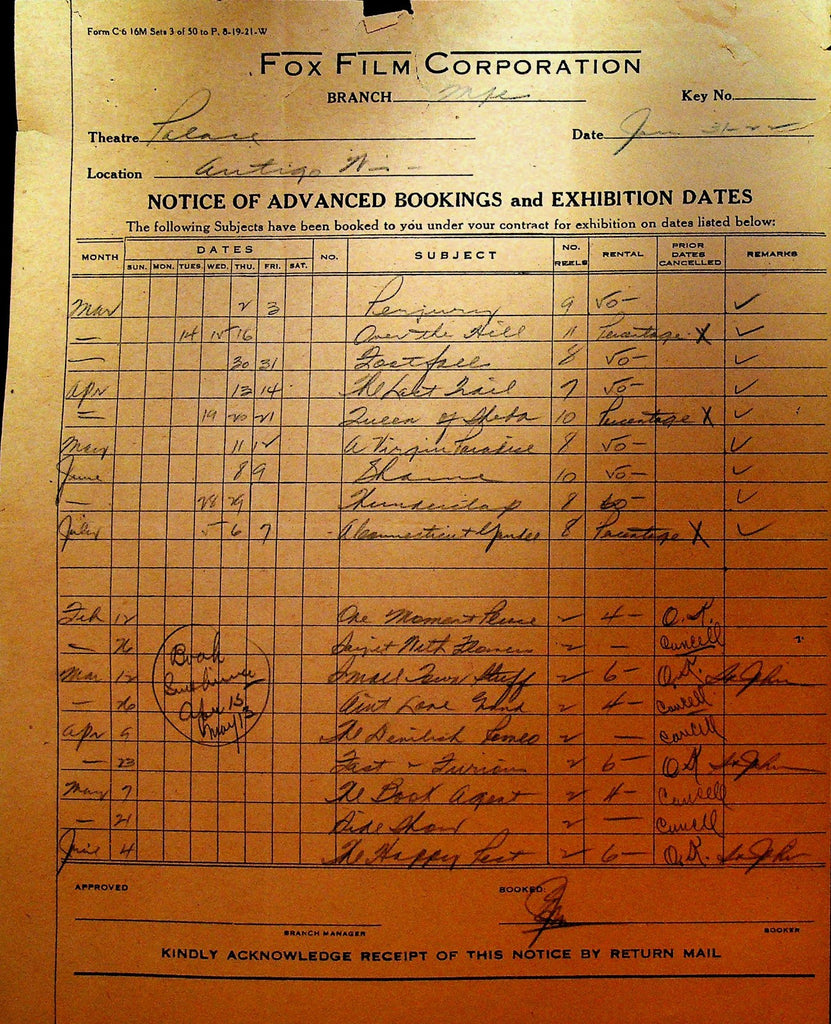 Form C-6 16M Sets 3 of 50 to P. 8-19-21-W
FOX FILM CORPORATION
BRANCH Mpls Key No.
Theatre Palace Date Jan 31-22
Location Antigo Wis
NOTICE OF ADVANCED BOOKINGS and EXHIBITION DATES
The following Subjects have been booked to you under your contract for exhibition on dates listed below:
MONTH DATES NO. SUBJECT NO. REELS RENTAL PRIOR DATES CANCELLED REMARKS
SUN. MON. TUES. WED. THU. FRI. SAT.
Mar 2 3 Perjury 9 50– ✓
— 14 15 16 Over the Hill 11 Percentage X ✓
— 30 31 Footfalls 8 50– ✓
Apr 13 14 The Last Trail 7 50– ✓
— 19 20 21 Queen of Sheba 10 Percentage X ✓
May 11 12 A Virgin Paradise 8 50– ✓
June 8 9 Shame 10 50– ✓
— 28 29 Thunderclap 8 ✓
July 5 6 7 A Connecticut Yankee 8 Percentage X ✓
Feb 12 One Moment Please 2 4– O.K.
— 26 Say it With Flowers 2 — Cancell
Mar 12 Small Town Stuff 2 6– O.K. St John
— 26 Aint Love Grand 2 4– Cancell
Apr 9 The Devilish Romeo 2 — Cancell
— 23 Fast & Furious 2 6– O.K. St John
May 7 The Book Agent 2 4– Cancell
— 21 Side Show 2 — Cancell
June 4 The Happy Pest 2 6– O.K. St John
Book
Sunshine
Apr 15
May 13
APPROVED BOOKED:
BRANCH MANAGER BOOKER
KINDLY ACKNOWLEDGE RECEIPT OF THIS NOTICE BY RETURN MAIL